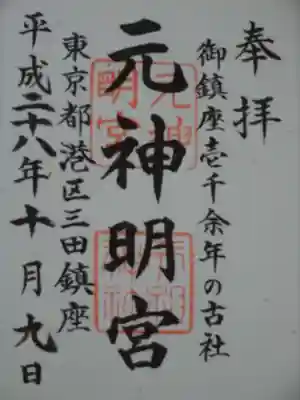 奉拝
御鎮座壱千余年の古社
元神明宮
東京都港区三田鎮座
平成二十八年十月九日
元神明宮